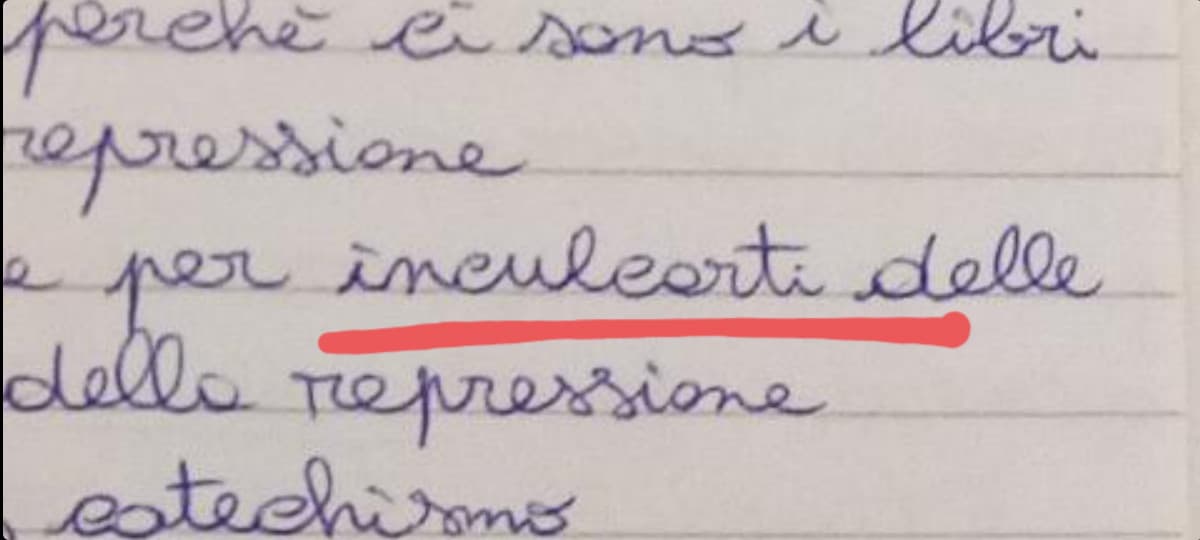 perchè ci sono i libri
repressione
e per inculcarti delle
della repressione
catechismo